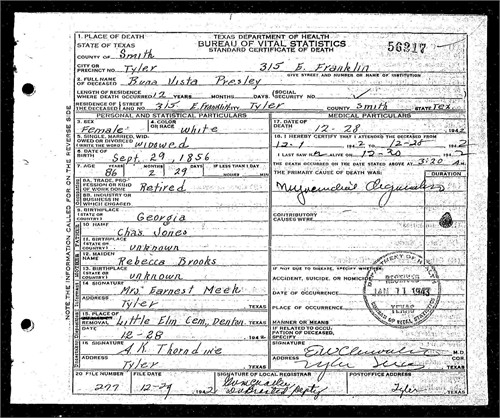 TEXAS DEPARTMENT OF HEALTH
BUREAU OF VITAL STATISTICS
STANDARD CERTIFICATE OF DEATH
56217
1. PLACE OF DEATH
STATE OF TEXAS
COUNTY OF Smith
CITY OR PRECINCT NO. Tyler 315 E. Franklin
GIVE STREET AND NUMBER OR NAME OF INSTITUTION
2. FULL NAME OF DECEASED Buna Vista Presley
LENGTH OF RESIDENCE WHERE DEATH OCCURRED 12 YEARS MONTHS DAYS (SOCIAL SECURITY NO.
RESIDENCE OF THE DECEASED STREET AND NO. 315 E. Franklin CITY Tyler COUNTY Smith STATE Tex.
PERSONAL AND STATISTICAL PARTICULARS
3. SEX Female
4. COLOR OR RACE White
5. SINGLE, MARRIED, WIDOWED OR DIVORCED Widowed
6. DATE OF BIRTH Sept. 29, 1856
7. AGE YEARS 86 MONTHS 2 DAYS 29 IF LESS THAN 1 DAY
8A. TRADE, PROFESSION OR KIND OF WORK DONE Retired
8B. INDUSTRY OR BUSINESS IN WHICH ENGAGED
9. BIRTHPLACE (STATE OR COUNTRY) Georgia
10. NAME Chas. Jones
11. BIRTHPLACE (STATE OR COUNTRY) unknown
12. MAIDEN NAME Rebecca Brooks
13. BIRTHPLACE (STATE OR COUNTRY) unknown
14. SIGNATURE Mrs. Earnest Meek
ADDRESS Tyler TEXAS
15. PLACE OF BURIAL OR REMOVAL Little Elm Cem, Denton. TEXAS
DATE 12-28 1942
16. SIGNATURE A.K. Thorndine
ADDRESS Tyler TEXAS
MEDICAL PARTICULARS
17. DATE OF DEATH 12-28 1942
18. I HEREBY CERTIFY THAT I ATTENDED THE DECEASED FROM
12-1 1942 TO 12-28 1942
I LAST SAW HER ALIVE ON 12-20 1942
THE DEATH OCCURRED ON THE DATE STATED ABOVE AT 3:20 M.
THE PRIMARY CAUSE OF DEATH WAS: DURATION
Myocardial
CONTRIBUTORY CAUSES WERE:
IF NOT DUE TO DISEASE, SPECIFY WHETHER:
ACCIDENT, SUICIDE, OR HOMICIDE
DATE OF OCCURRENCE
PLACE OF OCCURRENCE
MANNER OR MEANS
IF RELATED TO OCCUPATION OF DECEASED, SPECIFY
19. SIGNATURE M.D.
ADDRESS Tyler Texas
DEPARTMENT OF HEALTH
RECEIVED
JAN 11 1943
TEXAS
BUREAU OF VITAL STATISTICS
20. FILE NUMBER 277
FILE DATE 12-29 1942
SIGNATURE OF LOCAL REGISTRAR
POSTOFFICE ADDRESS Tyler TEXAS
NOTE THE INFORMATION CALLED FOR ON THE REVERSE SIDE